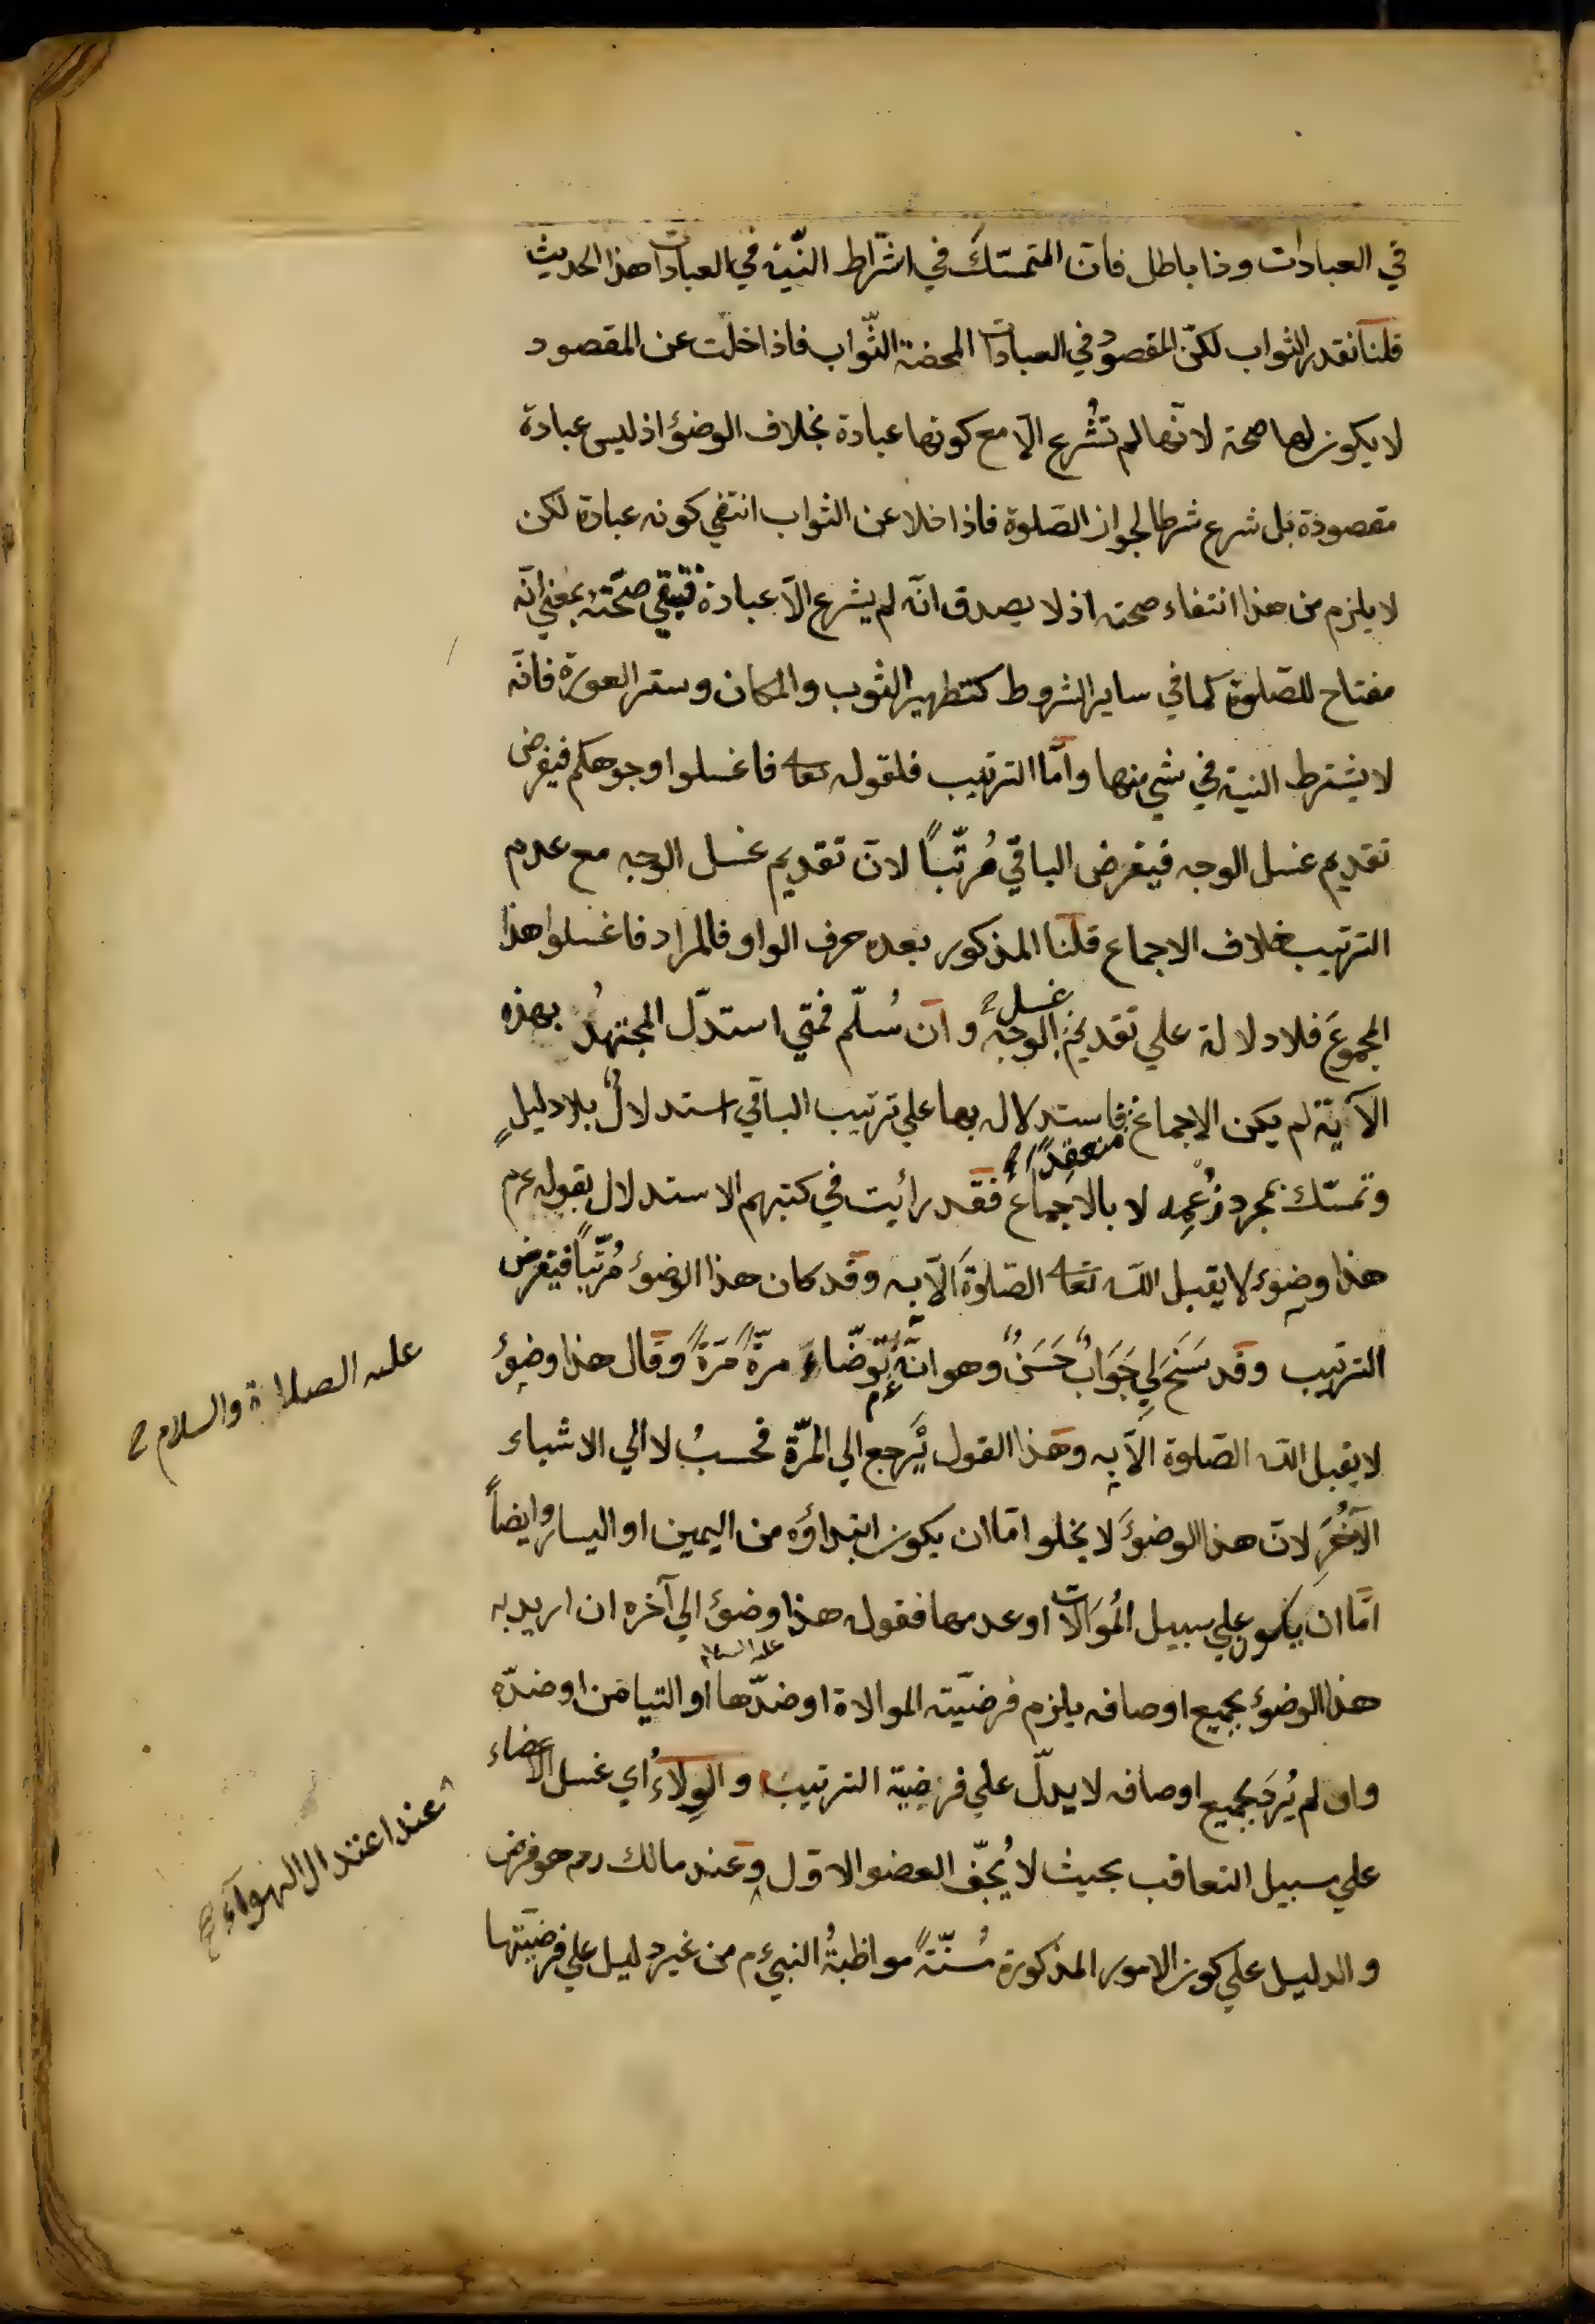 في العبادات وذا باطل فان المتمسّك في اشتراط النّية في العبادات هذا الحديث
قلنا نقدر الثواب لكنّ المقصود في العبادات المحضة الثّواب فاذا خلت عن المقصود
لا يكون لها صحة لانّها لم تُشرع الّا مع كونها عبادة بخلاف الوضؤ اذ ليس عبادة
مقصودة بل شرع شرطا لجواز الصّلوة فاذا خلا عن الثواب انتفي كونه عبادة لكن
لا يلزم من هذا انتفاء صحته اذ لا يصدق انّه لم يشرع الّا عبادة فتبقي صحّته بمعني انّه
مفتاح للصّلوة كما في ساير الشروط كتطهير الثوب والمكان وستر العورة فانّه
لا يشترط النية في شي منها وامّا الترتيب فلقوله تعا فاغسلوا وجوهكم فيفرض
تقديم غسل الوجه فيفرض الباقي مُرتّباً لانّ تقديم غسل الوجه مع عدم
الترتيب خلاف الاجماع قلنا المذكور بعده حرف الواو فالمراد فاغسلوا هذا
المجموعَ فلا دلالة علي تقديم غسل الوجه وان سُلّم فمتي استدّل المجتهدُ بهذه
الآية لم يكن الاجماع منعقداً فاستدلاله بها علي ترتيب الباقي استدلالٌ بلا دليلٍ
وتمسّك بمجرد زُعمِه لا بالاجماع فقد رأيت في كتبهم الاستدلال بقوله عم
هذا وضوء لا يقبل الله تعا الصّلوةَ الّا به وقد كان هذا الوضؤ مُرتّباً فيفرض
الترتيب وقد سَنَحَ لي جَوَابٌ حَسَنٌ وهو انّه عم توضّاء مرّةً مَرّةً وقال هذا وضؤ
لا يقبل الله الصّلوة الّا به وهذا القول يَرجع الي المرّة فحسبُ لا الي الاشياء
الأُخَرِ لانّ هذا الوضؤَ لا يخلو امّا ان يكون ابتداؤه من اليمين او اليسار وايضاً
امّا ان يكون علي سبيل المُوَالات او عدمها فقوله عليه السلام هذا وضؤ الي آخره ان اريد به
هذا الوضؤ بجميع اوصافه يلزم فرضيّته الموالاة او ضدّها او التيامن او ضدّه
وان لم يُرَد بجميع اوصافه لا يدلّ علي فرضِيّة الترتيب والوِلاءُ اي غسل الاعضاء
علي سبيل التعاقب بحيث لا يُجفّ العضو الاوّل وعند مالك رحه هو فرض
والدليل علي كون الامور المذكورة سُنّةً مواظبةُ النبيّ عم من غير دليل علي فرضيّتها
عليه الصلاة والسلام
عند اعتدال الهوآء